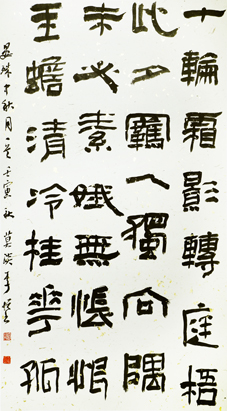 十輪霜影轉庭梧
此夕羈人獨向隅
未必素娥無悵恨
玉蟾清冷桂華孤
晏殊中秋月一首壬寅秋